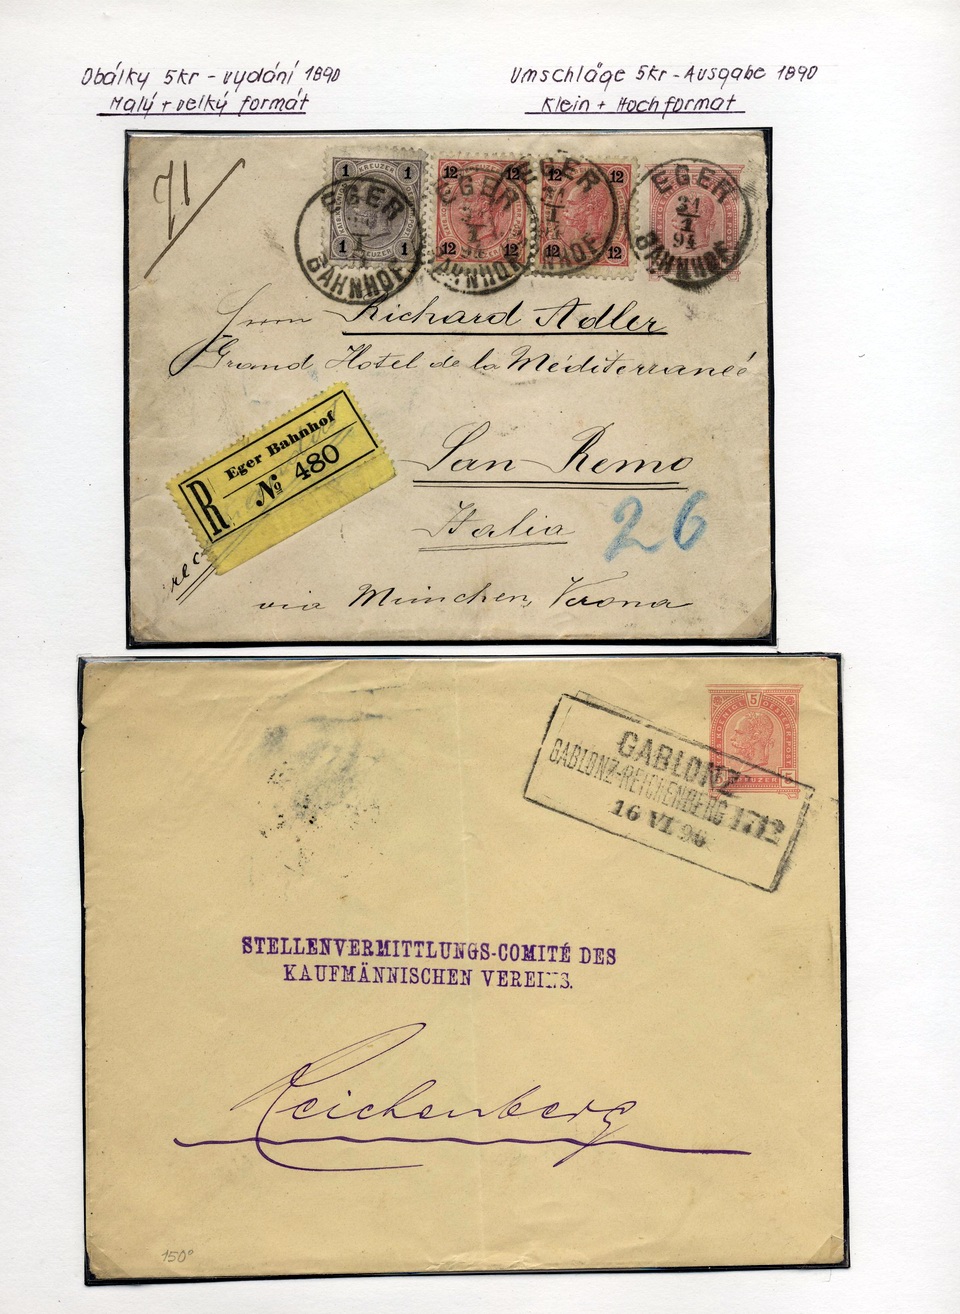 Obálky 5kr - vydání 1890
Malý + velký formát
Umschläge 5kr - Ausgabe 1890
Klein + Hochformat
71
1 KREUZER 1
1 1
12 12
12 12
12
12 12
EGER
BAHNHOF
EGER
BAHNHOF
EGER
EGER
31
1
94
BAHNHOF
Herrn Richard Adler
Grand Hotel de la Méditerraneé
R
Eger Bahnhof
№ 480
San Remo
Italia
26
via München, Verona
5
5
GABLONZ
GABLONZ-REICHENBERG 1712
16 VI 96
STELLENVERMITTLUNGS-COMITÉ DES
KAUFMÄNNISCHEN VEREINS.
Reichenberg
150°